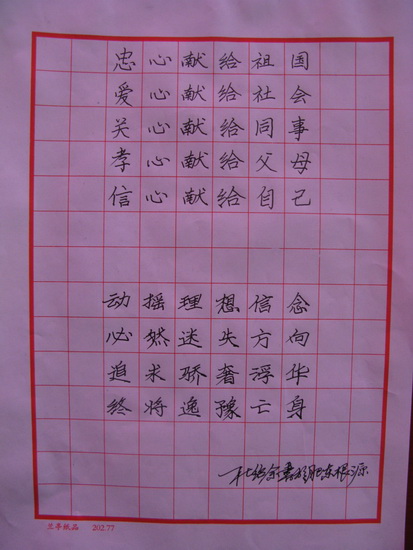 忠心献给祖国
爱心献给社会
关心献给同事
孝心献给父母
信心献给自己
动摇理想信念
必然迷失方向
追求骄奢浮华
终将逸豫亡身
兰亭纸品 202.77